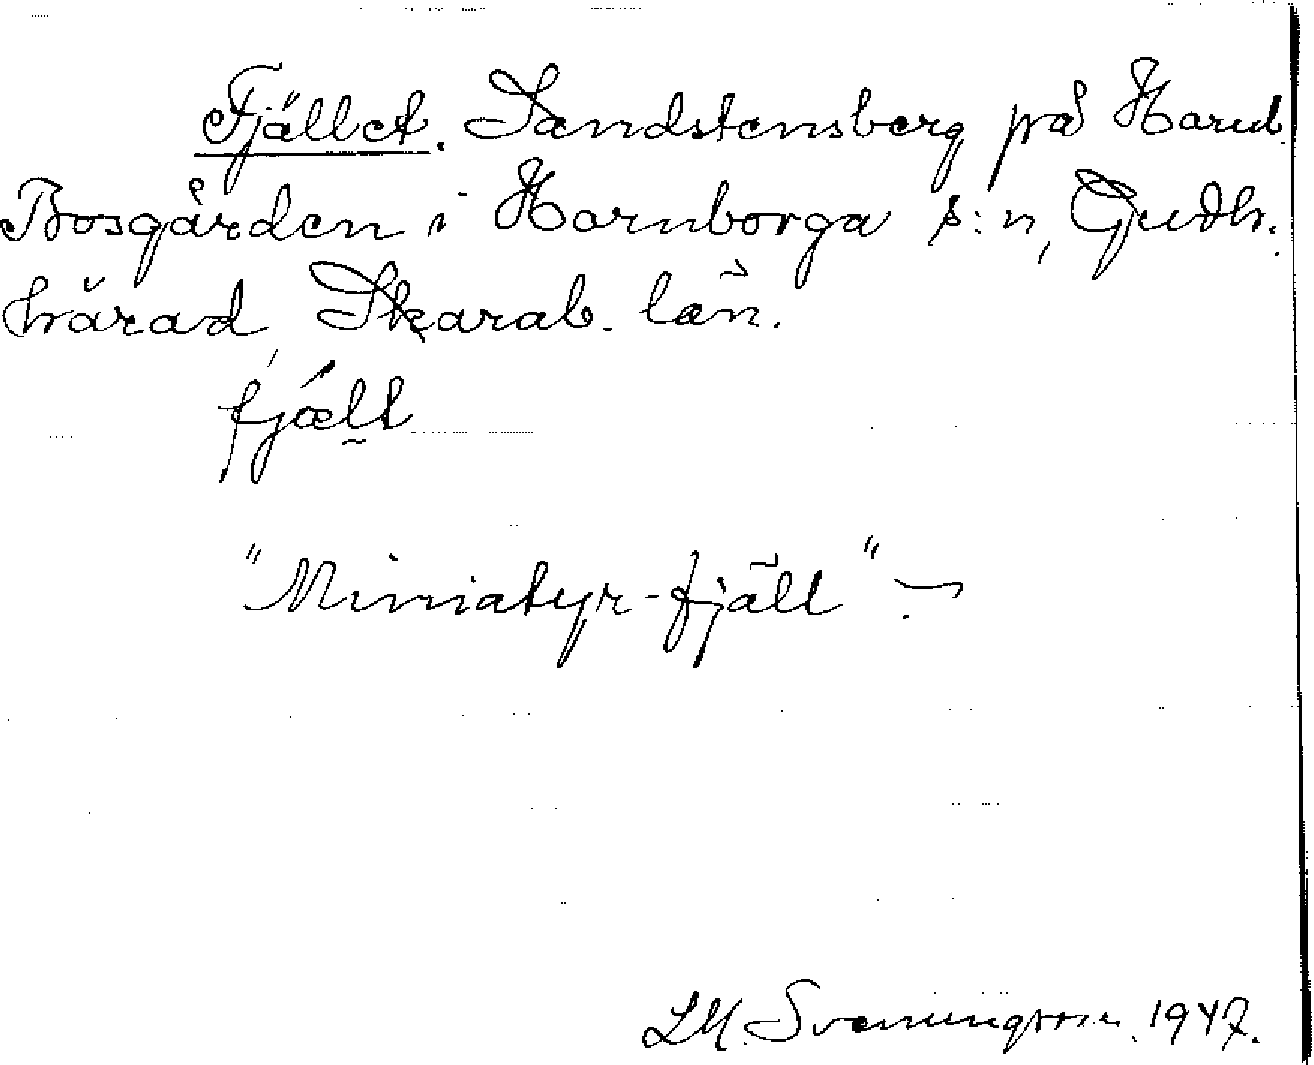 Fjället. Sandstensberg på
Bosgården i Hornborga s:n, Gudh.
härad, Skarab. län.
fjælt
"Miniatyr-fjäll".
LM. Svenungsson. 1947.